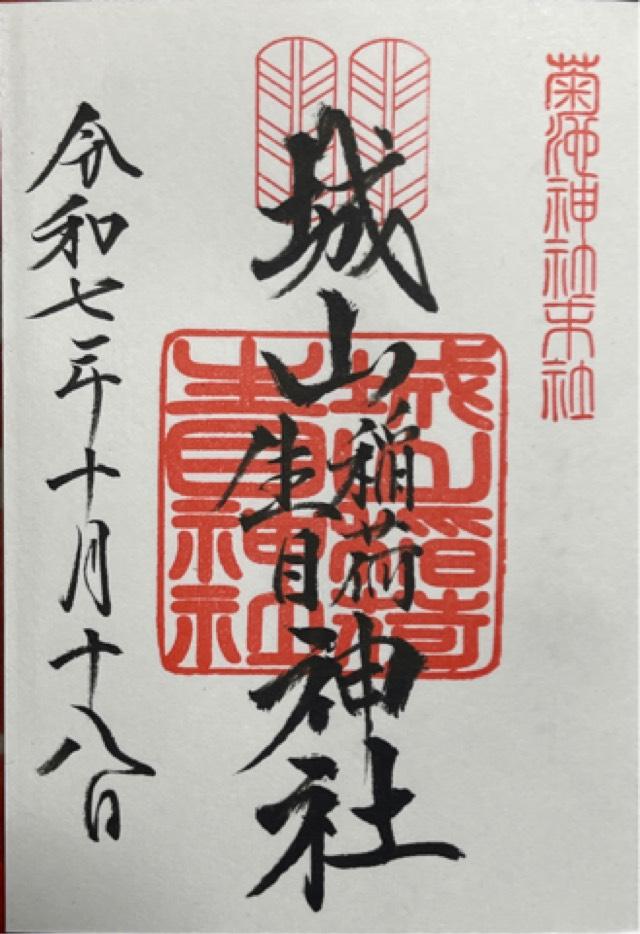 菊池神社末社
城山稲荷神社
生目
城山稲荷
生目神社
令和七年十月十八日